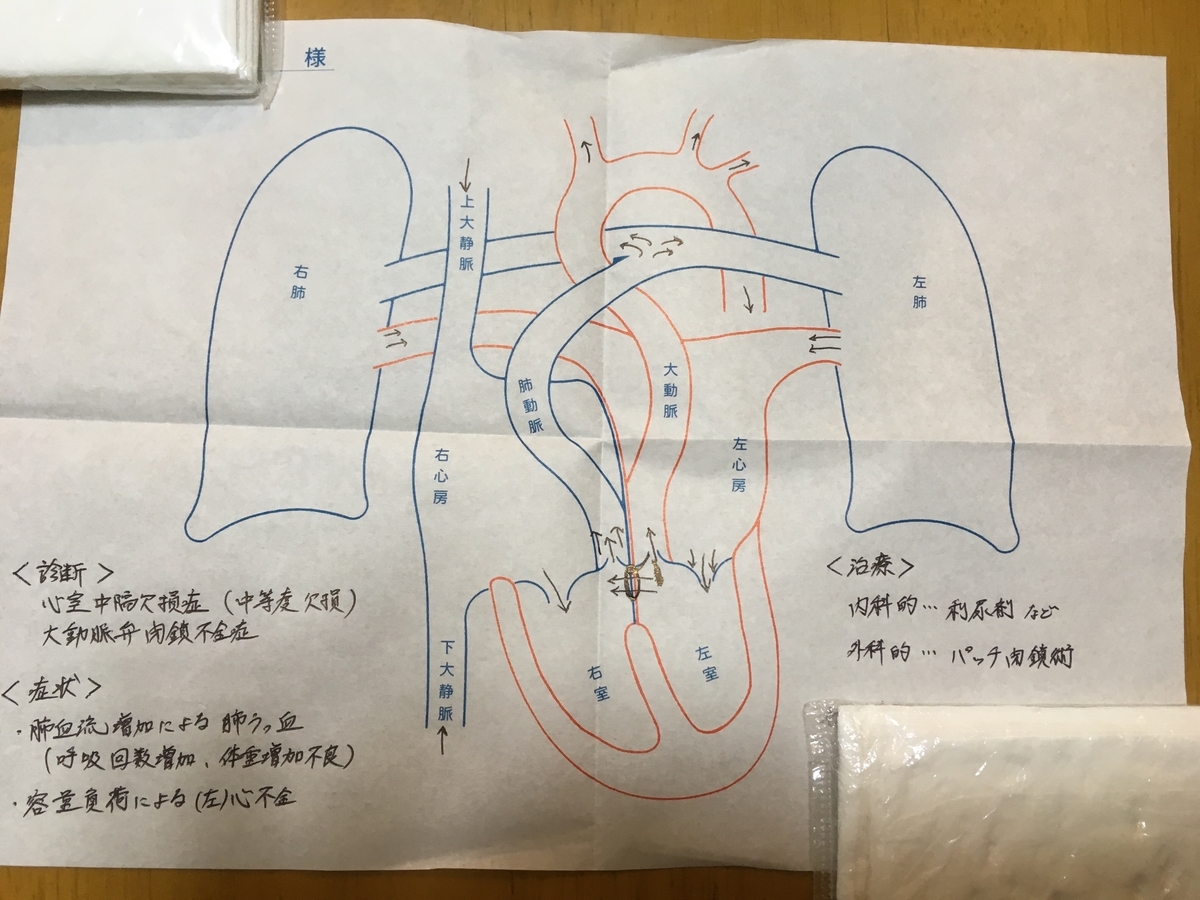 様
上大静脈
右肺
左肺
肺動脈
大動脈
右心房
左心房
<診断>
心室中隔欠損症(中等度欠損)
大動脈弁閉鎖不全症
<症状>
・肺血流増加による肺うっ血
(呼吸回数増加、体重増加不良)
・容量負荷による(左)心不全
下大静脈
右室
左室
<治療>
内科的… 利尿剤など
外科的… パッチ閉鎖術